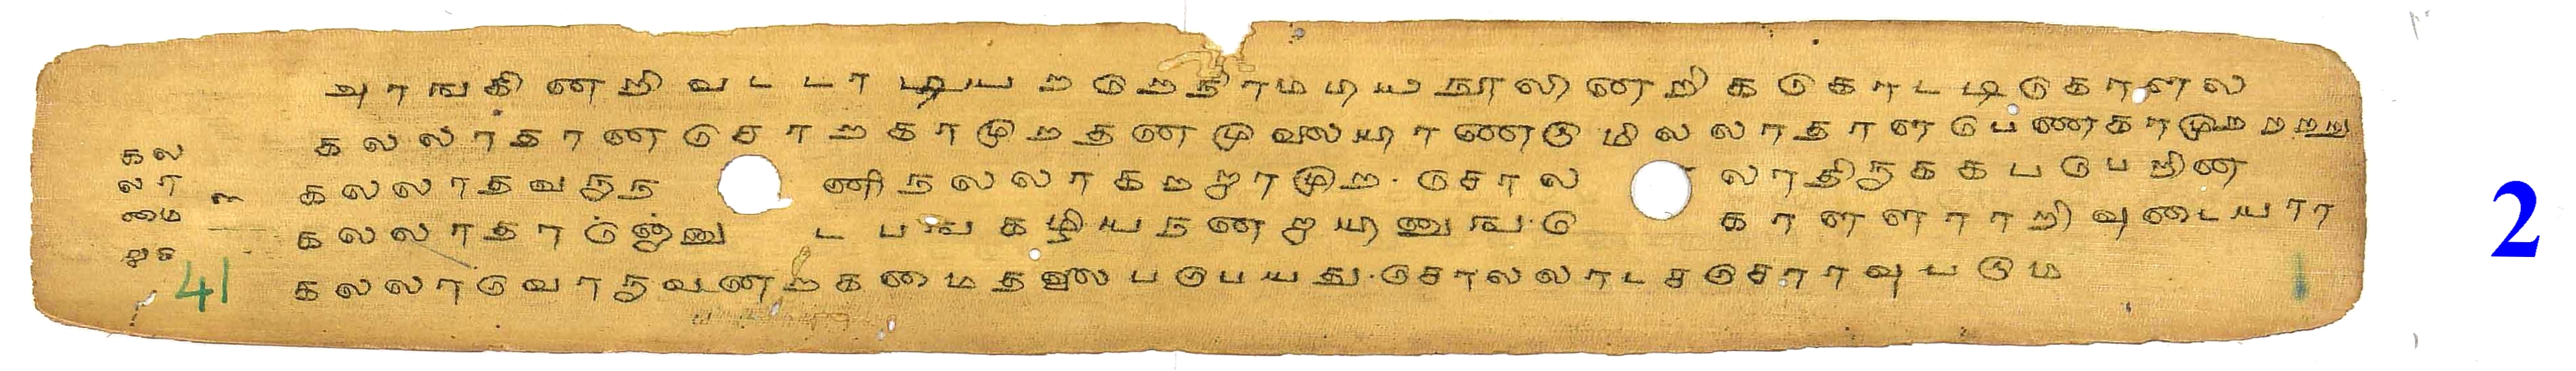 அரங்கினறி வடடாடியறறெநிரமபியநூலினறிககொடடிகொளல
கலலாதானசொறகாமுறதனமுலையிரணடுமிலலாதாளபெணகாமுறறறறு
கலலாதவரு
னிநலலாகறறாமுற சொல
லாதிருககபபெறின
கலலாதானொ
டபஙகழியநனறயினுங கொ
காளளாரறிவுடையார
கலலாவொருவனறகைமைதலைபபெயது சொலலாடசசொரவுபடும
கல
லா
மை
41
2